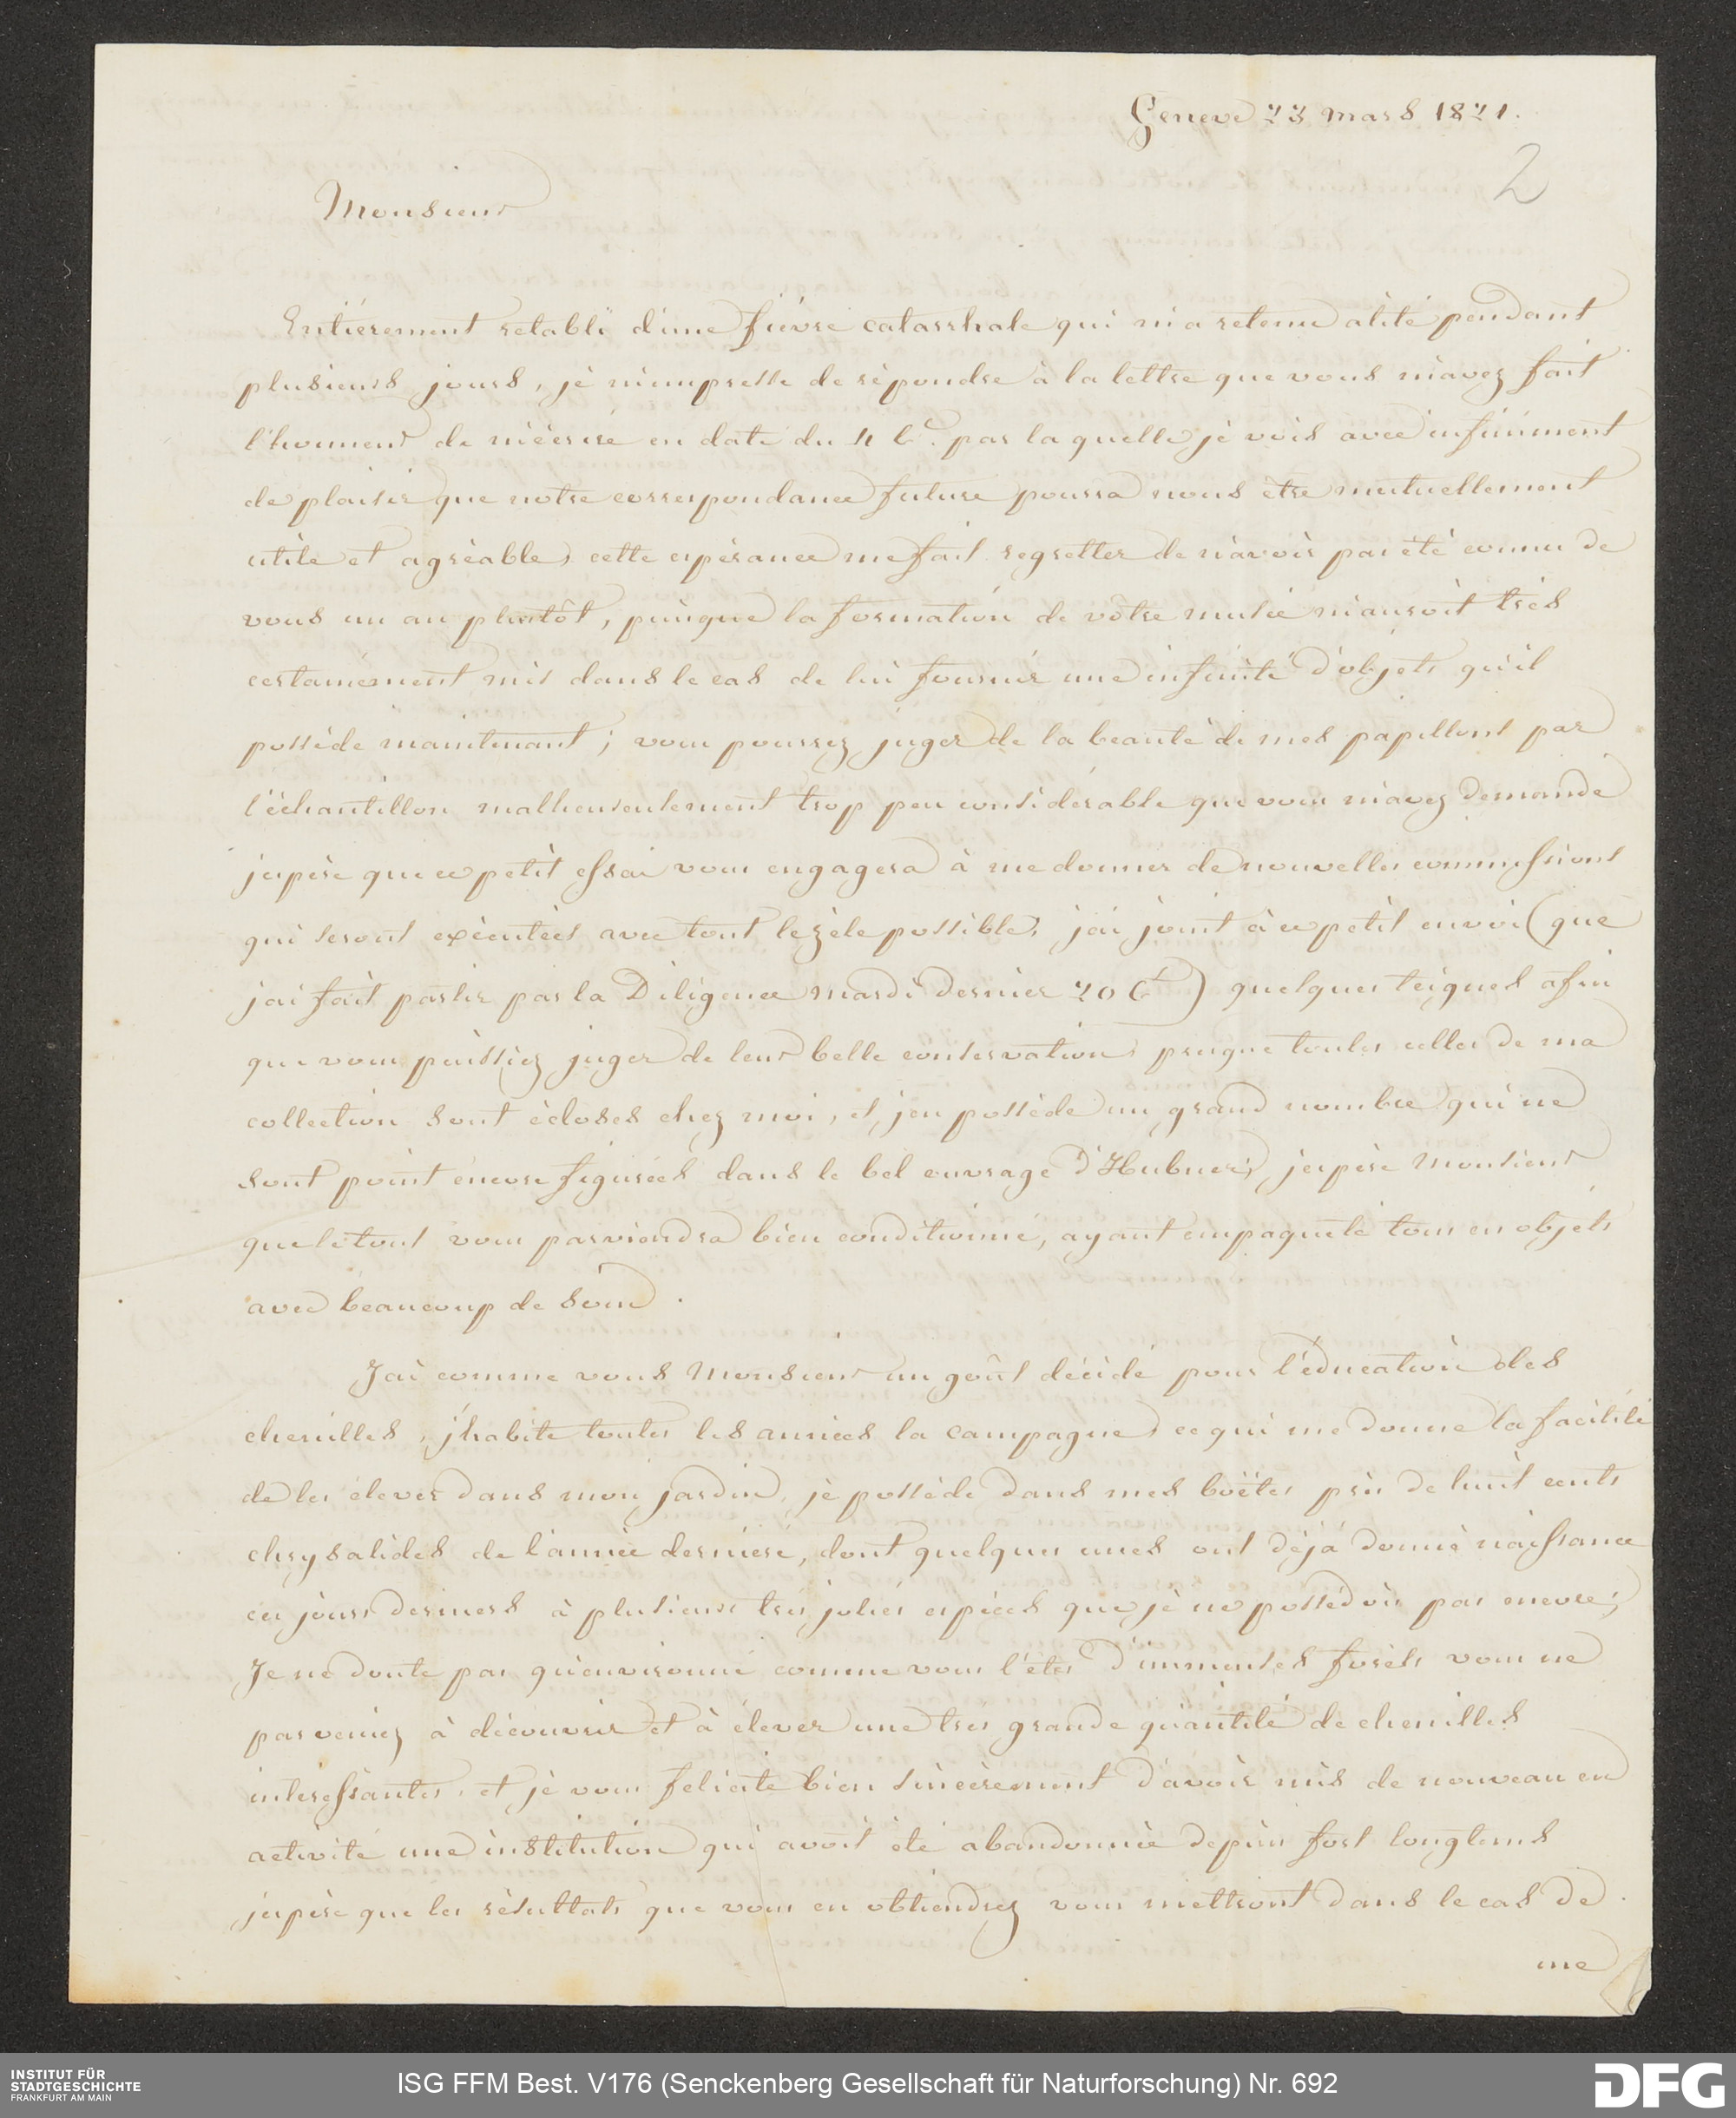 Geneve 23 mars 1821.
2
Monsieur
Entiérement retabli d'une fiévre catarrhale qui m'a retenu alité pendant
plusieurs jours, je m'empresse de répondre à la lettre que vous m'avez fait
l'honneur de m'écrire en date du 11 Ct. par la quelle je vois avec infiniment
de plaisir que notre correspondance future pourra nous être mutuellement
utile et agréable, cette espérance me fait regretter de n'avoir pas été connu de
vous un an plutôt, puisque la formation de vôtre musée m'auroit très
certainement mis dans le cas de lui fournir une infinité d'objets qu'il
possède maintenant; vous pourrez juger de la beauté de mes papillons par
l'échantillon malheureusement trop peu considérable que vous m'avez demandé
jespère que ce petit essai vous engagera à me donner de nouvelles commissions
qui seront exécutées avec tout le zèle possible, j'ai joint à ce petit envoi (que
jai fait partir par la Diligence mardi dernier 20 Ct) quelques teignes afin
que vous puissiez juger de leur belle conservation presque toutes celles de ma
collection sont écloses chez moi, et j'en possède un grand nombre qui ne
sont point encore figurées dans le bel ouvrage d'Hubner, jespère Monsieur
que le tout vous parviendra bien conditionné, ayant empaqueté tous ces objets
avec beaucoup de soin.
J'ai comme vous Monsieur un goût décidé pour l'éducation des
chenilles, j'habite toutes les années la campagne, ce qui me donne la facilité
de les élever dans mon jardin, je possède dans mes boëtes près de huit cents
chrysalides de l'année derniere, dont quelques unes ont déjà donné naissance
ces jours derniers à plusieurs très jolies espèces que je ne possédois pas encore;
Je ne doute pas qu'environné comme vous l'êtes d'immenses forêts vous ne
parveniez à découvrir et à élever une très grande quantité de chenilles
intéressantes, et je vous felicite bien sincèrement d'avoir mis de nouveau en
activité une institution qui avoit été abandonnée depuis fort longtems
jespère que les résultats que vous en obtiendrez vous mettront dans le cas de
me
INSTITUT FÜR
STADTGESCHICHTE
FRANKFURT AM MAIN
ISG FFM Best. V176 (Senckenberg Gesellschaft für Naturforschung) Nr. 692
DFG